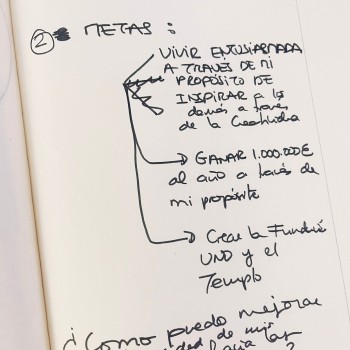 ② METAS :
VIVIR ENTUSIASMADA
A TRAVÉS DE MI
PROPÓSITO DE
INSPIRAR A los
demás a través
de la Creatividad
GANAR 1.000.000€
al año a través de
mi propósito
Crear la Fundació
UNO y el
Templo
¿Como puedo mejorar
de mis